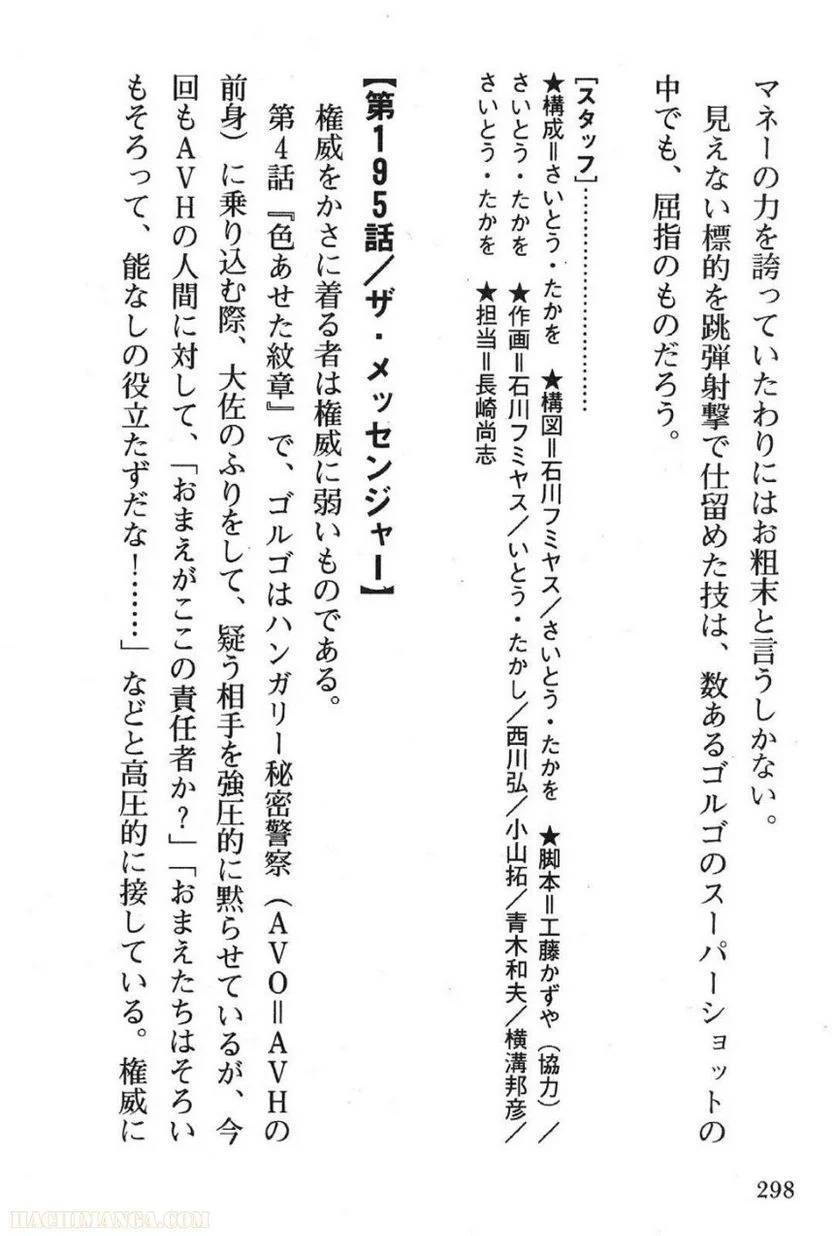 マネーの力を誇っていたわりにはお粗末と言うしかない。
見えない標的を跳弾射撃で仕留めた技は、数あるゴルゴのスーパーショットの
中でも、屈指のものだろう。
［スタッフ］……………………………
★構成＝さいとう・たかを　★構図＝石川フミヤス／さいとう・たかを　★脚本＝工藤かずや（協力）／
さいとう・たかを　★作画＝石川フミヤス／いとう・たかし／西川弘／小山拓／青木和夫／横溝邦彦／
さいとう・たかを　★担当＝長崎尚志
【第195話／ザ・メッセンジャー】
権威をかさに着る者は権威に弱いものである。
第4話『色あせた紋章』で、ゴルゴはハンガリー秘密警察（AVO＝AVHの
前身）に乗り込む際、大佐のふりをして、疑う相手を強圧的に黙らせているが、今
回もAVHの人間に対して、「おまえがここの責任者か？」「おまえたちはそろい
もそろって、能なしの役立たずだな！……」などと高圧的に接している。権威に
298
HACHIMANGA.COM